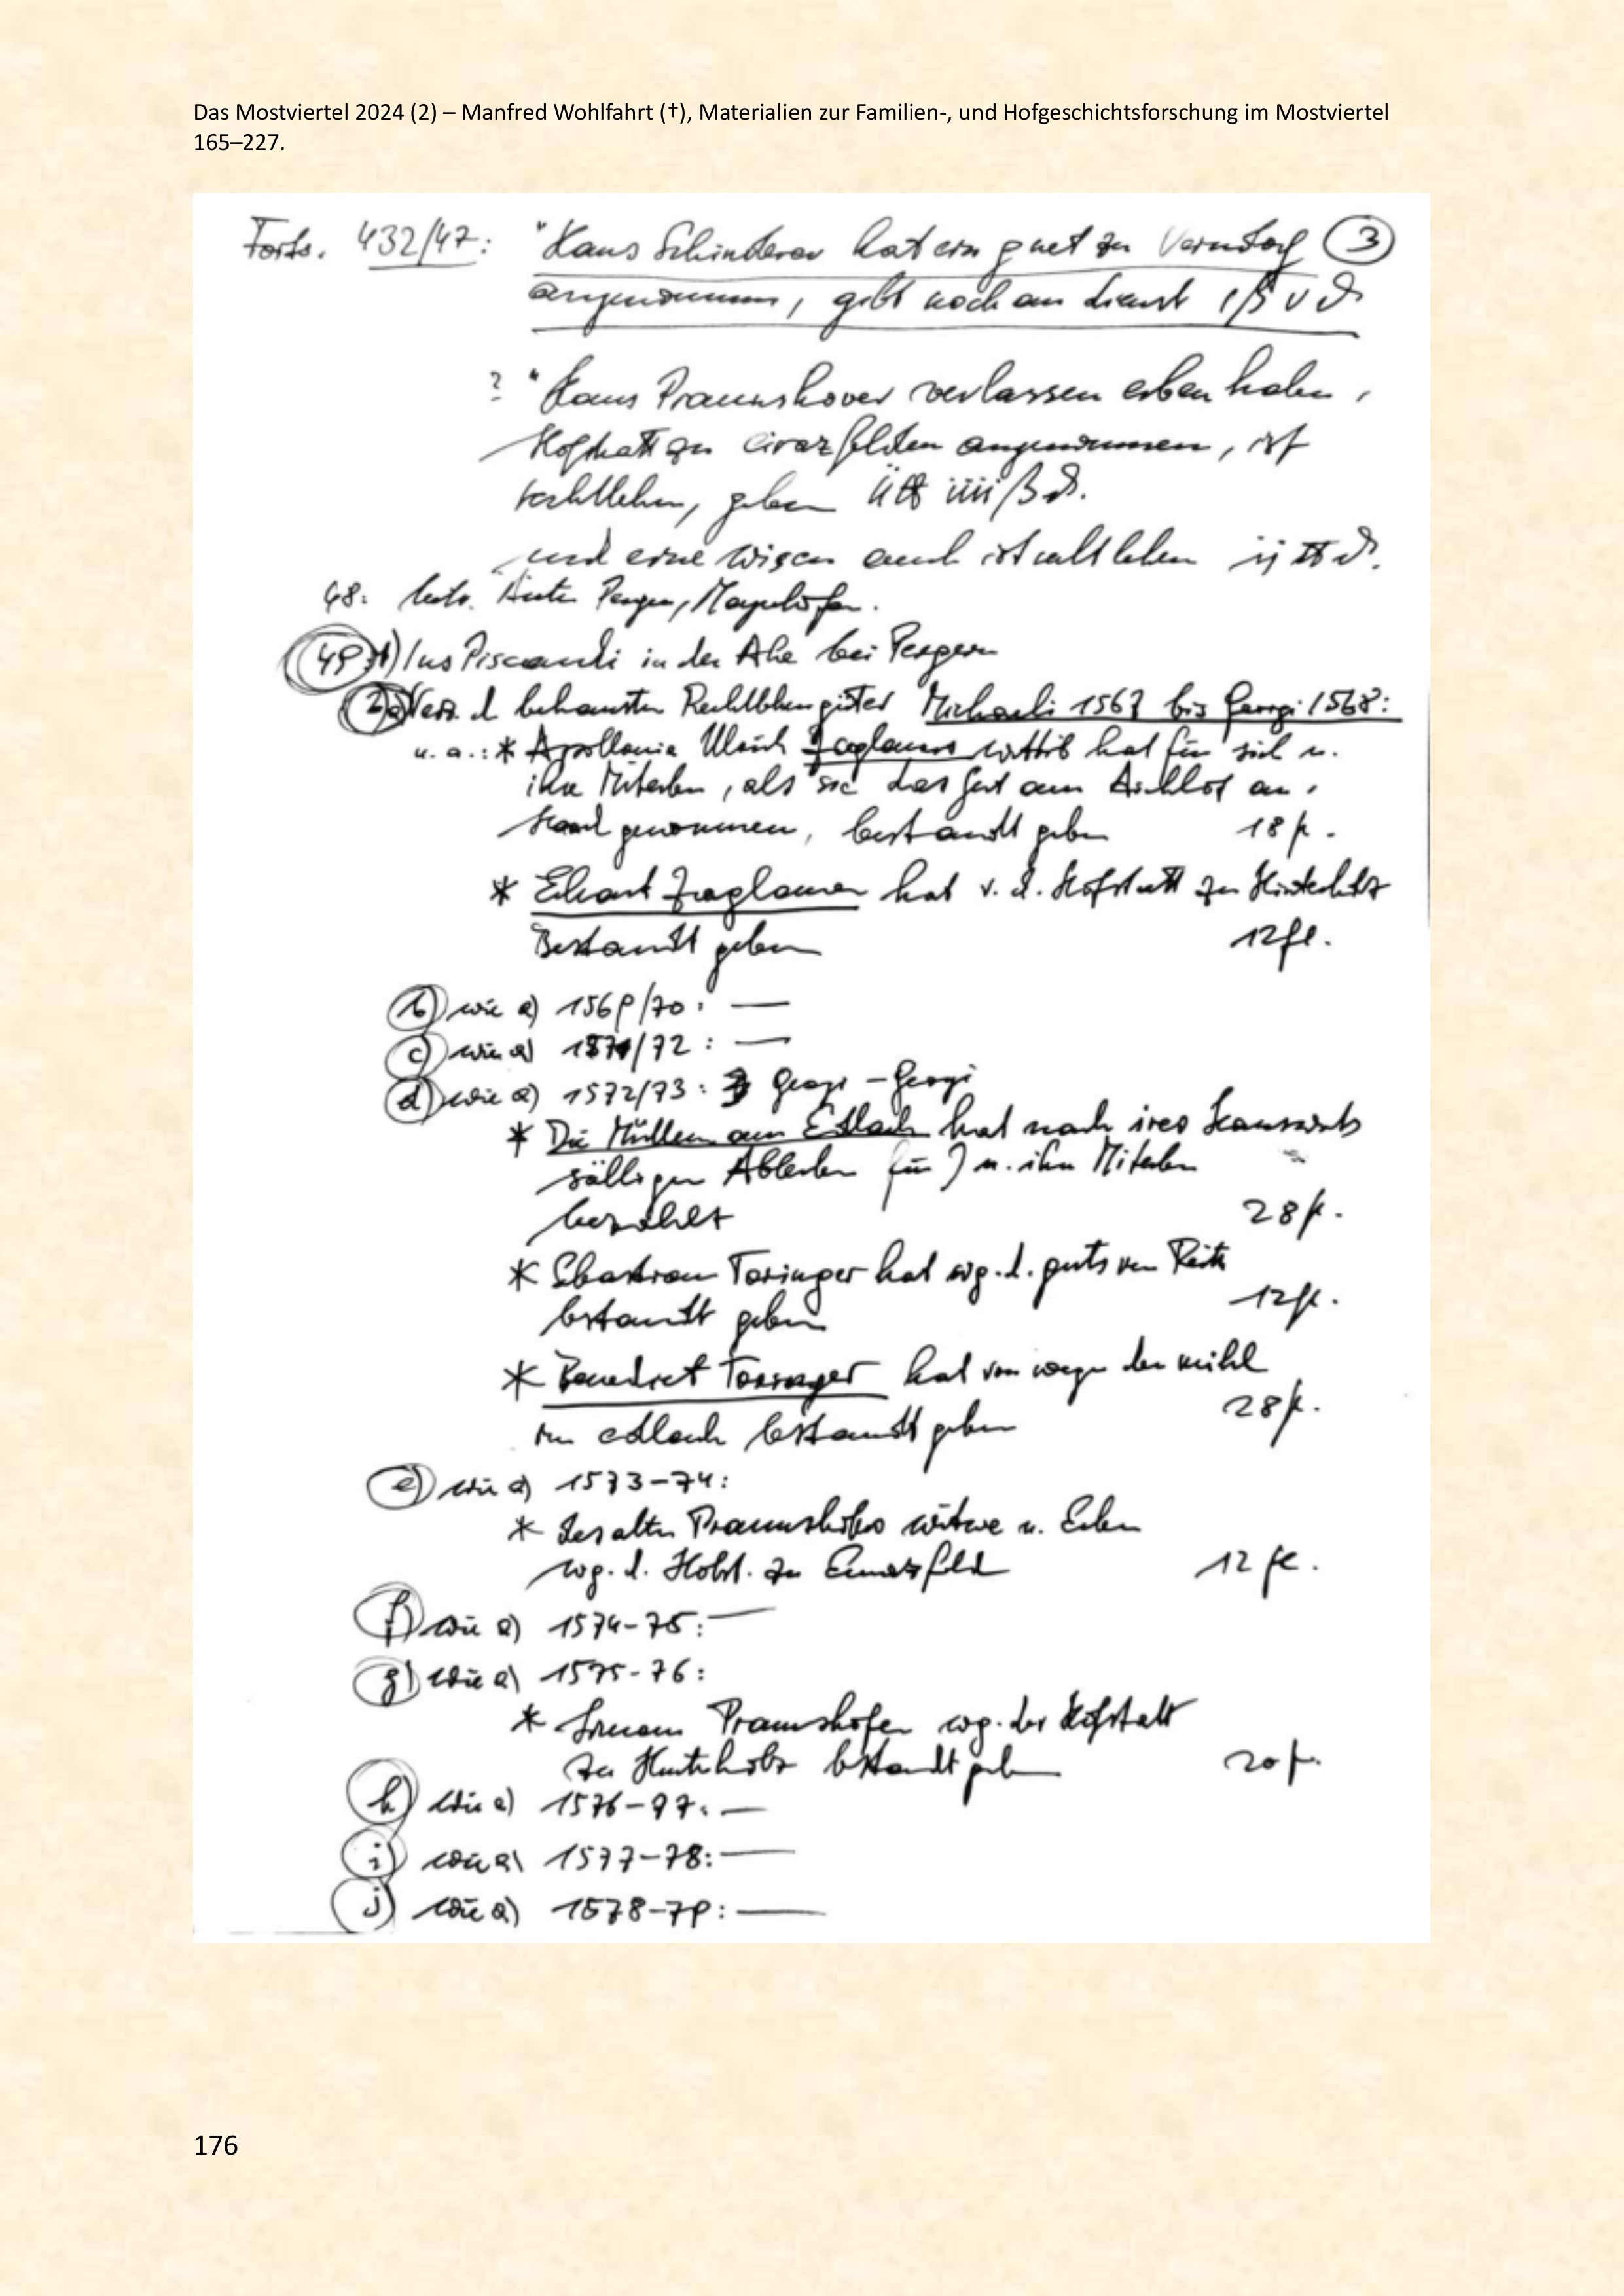 Das Mostviertel 2024 (2) – Manfred Wohlfahrt (†), Materialien zur Familien-, und Hofgeschichtsforschung im Mostviertel
165–227.
Forts. 432/47: "Hans Schinderer hat ein guet zu 3
angenommen, gibt noch am dienst
? "Hans Praunshover verlassen erben haben,
Hofstatt zu angenommen, ist
geben
und eine wisen auch ist
48: betr. Mayrhofen.
49 1) Ius Piscandi in der Ahe bei Pergern
2 a) Verz. d. behausten Rechtlehengüter Michaeli 1567 bis Georgi 1568:
u. a.: * Apollonia Ulrich wittib hat für sich u.
ihre Miterben, als sie das Gut am an
genommen, bestandt geben 18 fl.
* hat v. d. Hofstatt zu
Bestandt geben 12 fl.
b) wie a) 1569/70: —
c) wie a) 1571/72: —
d) wie a) 1572/73: Georgi – Georgi
* Die Müllerin am Edlach hat nach ires Hauswirts
sälligen Ableben für u. ihre Miterben
bezahlt 28 fl.
* Sebastian Toringer hat wg. d. guts
bestandt geben 12 fl.
* Benedict hat von wegen der mühl
im edlach bestandt geben 28 fl.
e) wie a) 1573–74:
* des alten Praunshofers witwe u. Erben
wg. d. Hofst. zu 12 fl.
f) wie a) 1574–75: —
g) wie a) 1575–76:
* Praunshofer wg. der Hofstatt
zu Hinterholz bestandt geben 20 fl.
h) wie a) 1576–77: —
i) wie a) 1577–78: —
j) wie a) 1578–79: —
176